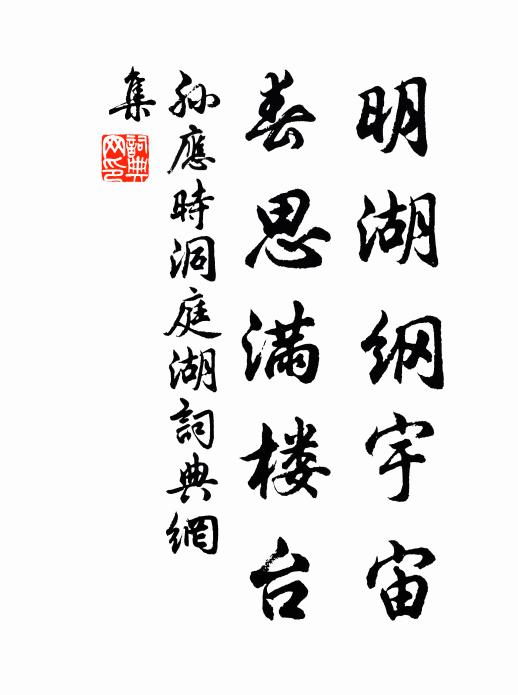 明湖纲宇宙
春思满楼台
孙應時洞庭湖詞典網
集
詞典网印